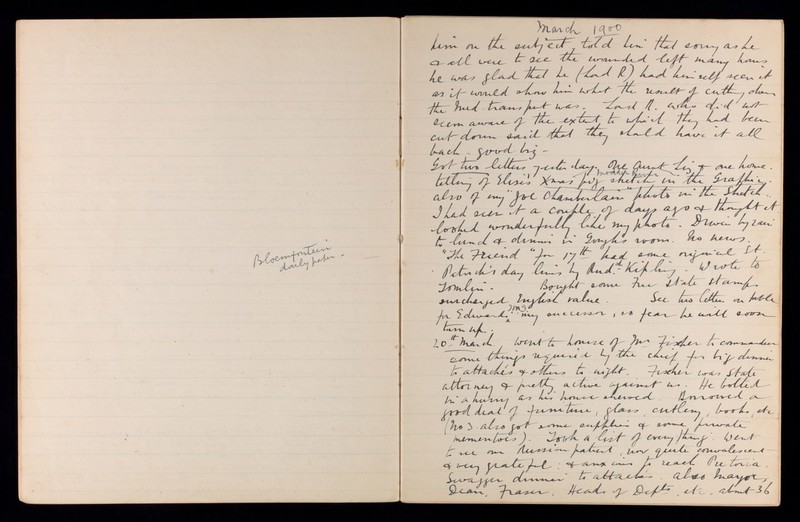 Bloemfontein
daily paper -
March 1900
him on the subject, told him that sorry as he
& all were to see the wounded left many hours
he was glad that he (Lord R) had himself seen it
as it would show him what the result of cutting down
the Med transport was. Lord R. who did not
seem aware of the extent to which they had been
cut down said that they should have it all
back - good biz -
Got two letters yesterday, One Aunt Liz & one home.
telling of Elsie's Xmas pig sketch in the Graphic,
also of my "Joe Chamberlain" photo in the Sketch.
I had seen it a couple of days ago & thought it
looked wonderfully like my photo. Driven by rain
to lunch & dinner in Gough's room. No news.
"The Friend" for 17th had some original St.
Patrick's day lines by Rud. Kipling. Wrote to
Tomlin. Bought some Free State stamps
surcharged English value. See his letter on table
for Edwards, my successor, so fear he will soon
turn up.
20th March. Went to house of Mr Fischer to commandeer
some things required by the chief for big dinner
to attachés & others to night. Fischer was State
attorney & pretty active against us. He bolted
in a hurry as his house shewed. Borrowed a
good deal of furniture, glass, cutlery, books, etc
(No 3 also got some supplies & some private
mementoes). Took a list of everything. Went
to see our Russian patient, now quite convalescent
& very grateful: & anxious to reach Pretoria.
Swagger dinner to attachés. also Mayor,
Dean, Fraser, Heads of Depts, etc. about 36